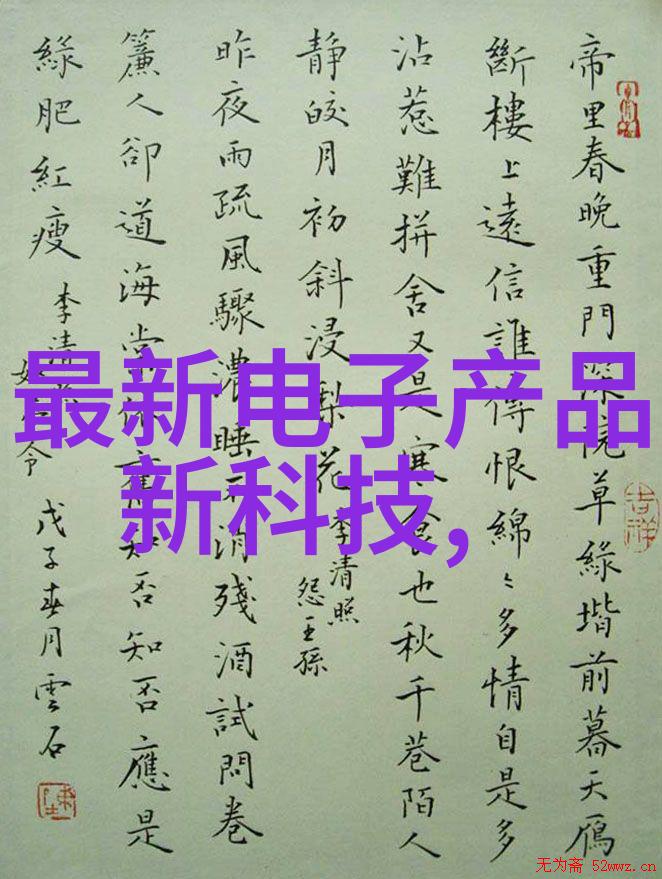 帝里春晚重門深院草綠堦前暮天鴈
斷樓上遠信誰傳恨綿〻多情自是多
沾惹難拼舍又是寒食也秋千巷陌人
靜皎月初斜浸梨花
李清照
怨王孫
昨夜雨疏風驟濃睡不消殘酒試問卷
簾人卻道海棠依舊知否知否應是
綠肥紅瘦
李清
令
戊子春月雲石
吉祥
最新电子产品
新科技,
无为斋 52wwz.cn